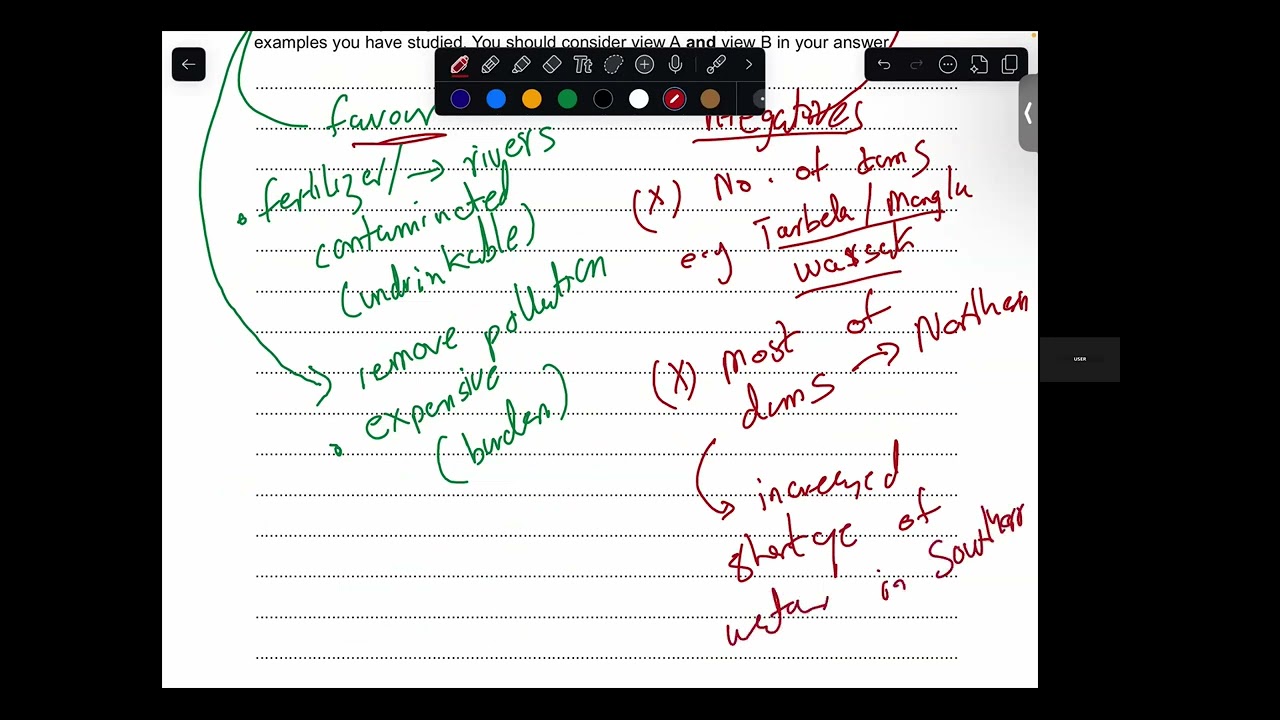 examples you have studied. You should consider view A and view B in your answer
Tt
favour
• fertilizer/ → rivers
contaminated
(undrinkable)
remove pollution
• expensive
(burden)
negatives
(X) No. of dams
e.g Tarbela / Mangla
Warsak
(X) Most of
dams → Northern
increased
shortage of
water in Southern
USER